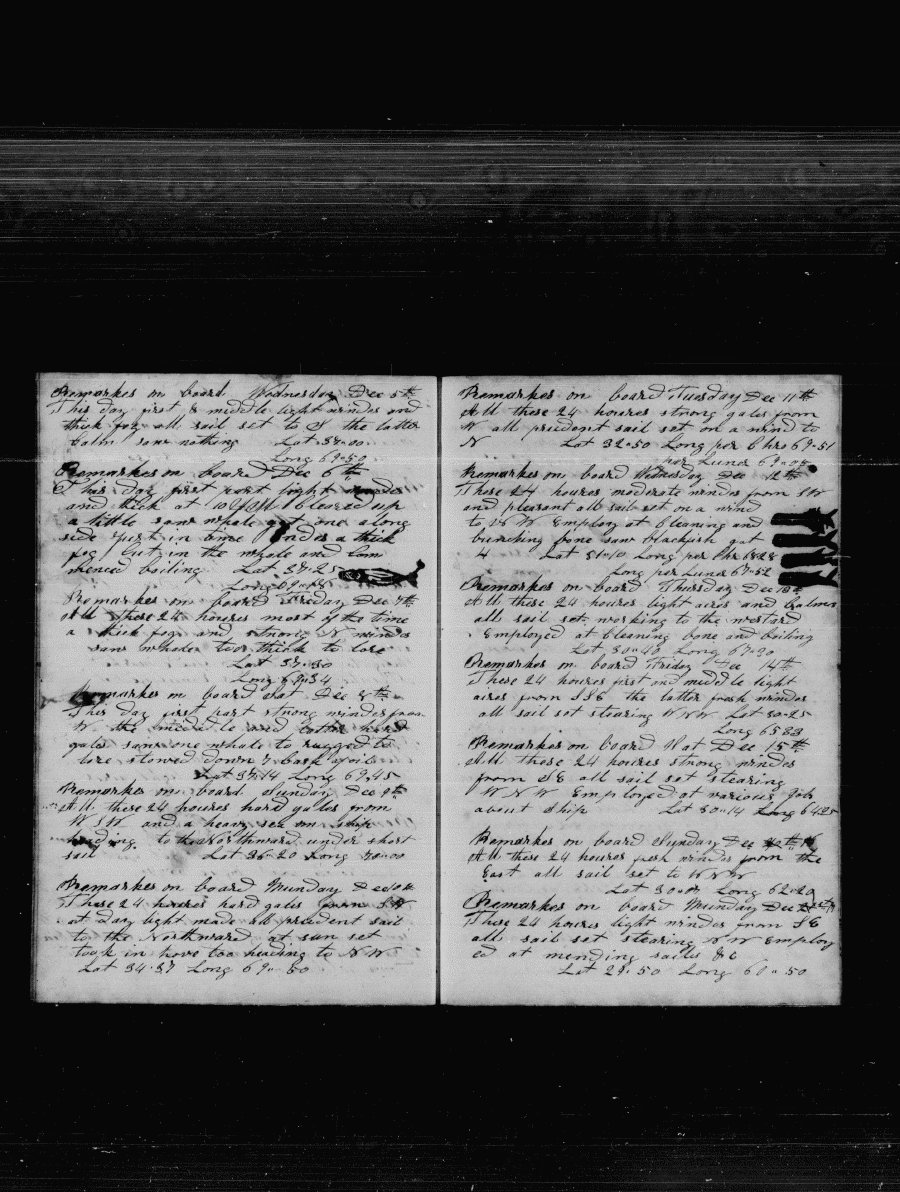 Remarkes on board Wednesday Dec 5th
This day first & middle light windes and
thick fog all sail set to S the latter
calm saw nothing Lat 38-00
Long 69-50
Remarkes on board Dec 6th
This day first part light windes
and thick at 10 cleared up
a little saw whale got one along
side just in time under a thick
fog cut in the whale and com
menced boiling Lat 38-25
Long 69-
Remarkes on board Friday Dec 7th
All these 24 houres most of the time
a thick fog and strong N windes
saw whales too thick to lore
Lat 37-30
Long 69-34
Remarkes on board Sat Dec 8th
This day first part strong windes from
W the middle and latter hard
gales saw one whale to rugged to
lore stowed down 7 bask
Lat 37-14 Long 69,45
Remarkes on board Sunday Dec 9th
All these 24 houres hard gales from
W S W and a heavy sea on ship
heading to the northward under short
sail Lat 36-20 Long 70-00
Remarkes on board Munday Dec 10th
These 24 houres hard gales from S W
at day light made all prudent sail
to the Northward at sun set
took in hove too heading to N W
Lat 34-37 Long 69-50
Remarkes on board Tuesday Dec 11th
All these 24 houres strong gales from
W all prudent sail set on a wind to
N Lat 32-50 Long per Chro 69-51
per Lunar 69-05
Remarkes on board Wednesday Dec 12th
These 24 houres moderate windes from S W
and pleasant all sail set on a wind
to W Employ at cleaning and
bunching bone saw blackfish got
4 Lat 31-10 Long per Chr 68-28
Long per Lunar 67-52
Remarkes on board Thursday Dec 13th
All these 24 houres light aires and Calms
all sail set working to the westard
Employed at cleaning bone and boiling
Lat 30-40 Long 67-30
Remarkes on board Friday Dec 14th
These 24 houres first and middle light
aires from S S E the latter fresh windes
all sail set stearing W N W Lat 30-25
Long 65 33
Remarkes on board Sat Dec 15th
All these 24 houres strong windes
from S E all sail set stearing
W N W Employed at various jobs
about ship Lat 30-14 Long 64 25
Remarkes on board Sunday Dec 16
All these 24 houres fresh windes from the
East all sail set to W N W
Lat 30-07 Long 62-20
Remarkes on board Munday Dec
These 24 houres light windes from S E
all sail set stearing N W Employ
ed at mending sailes &c
Lat 29-50 Long 60-50